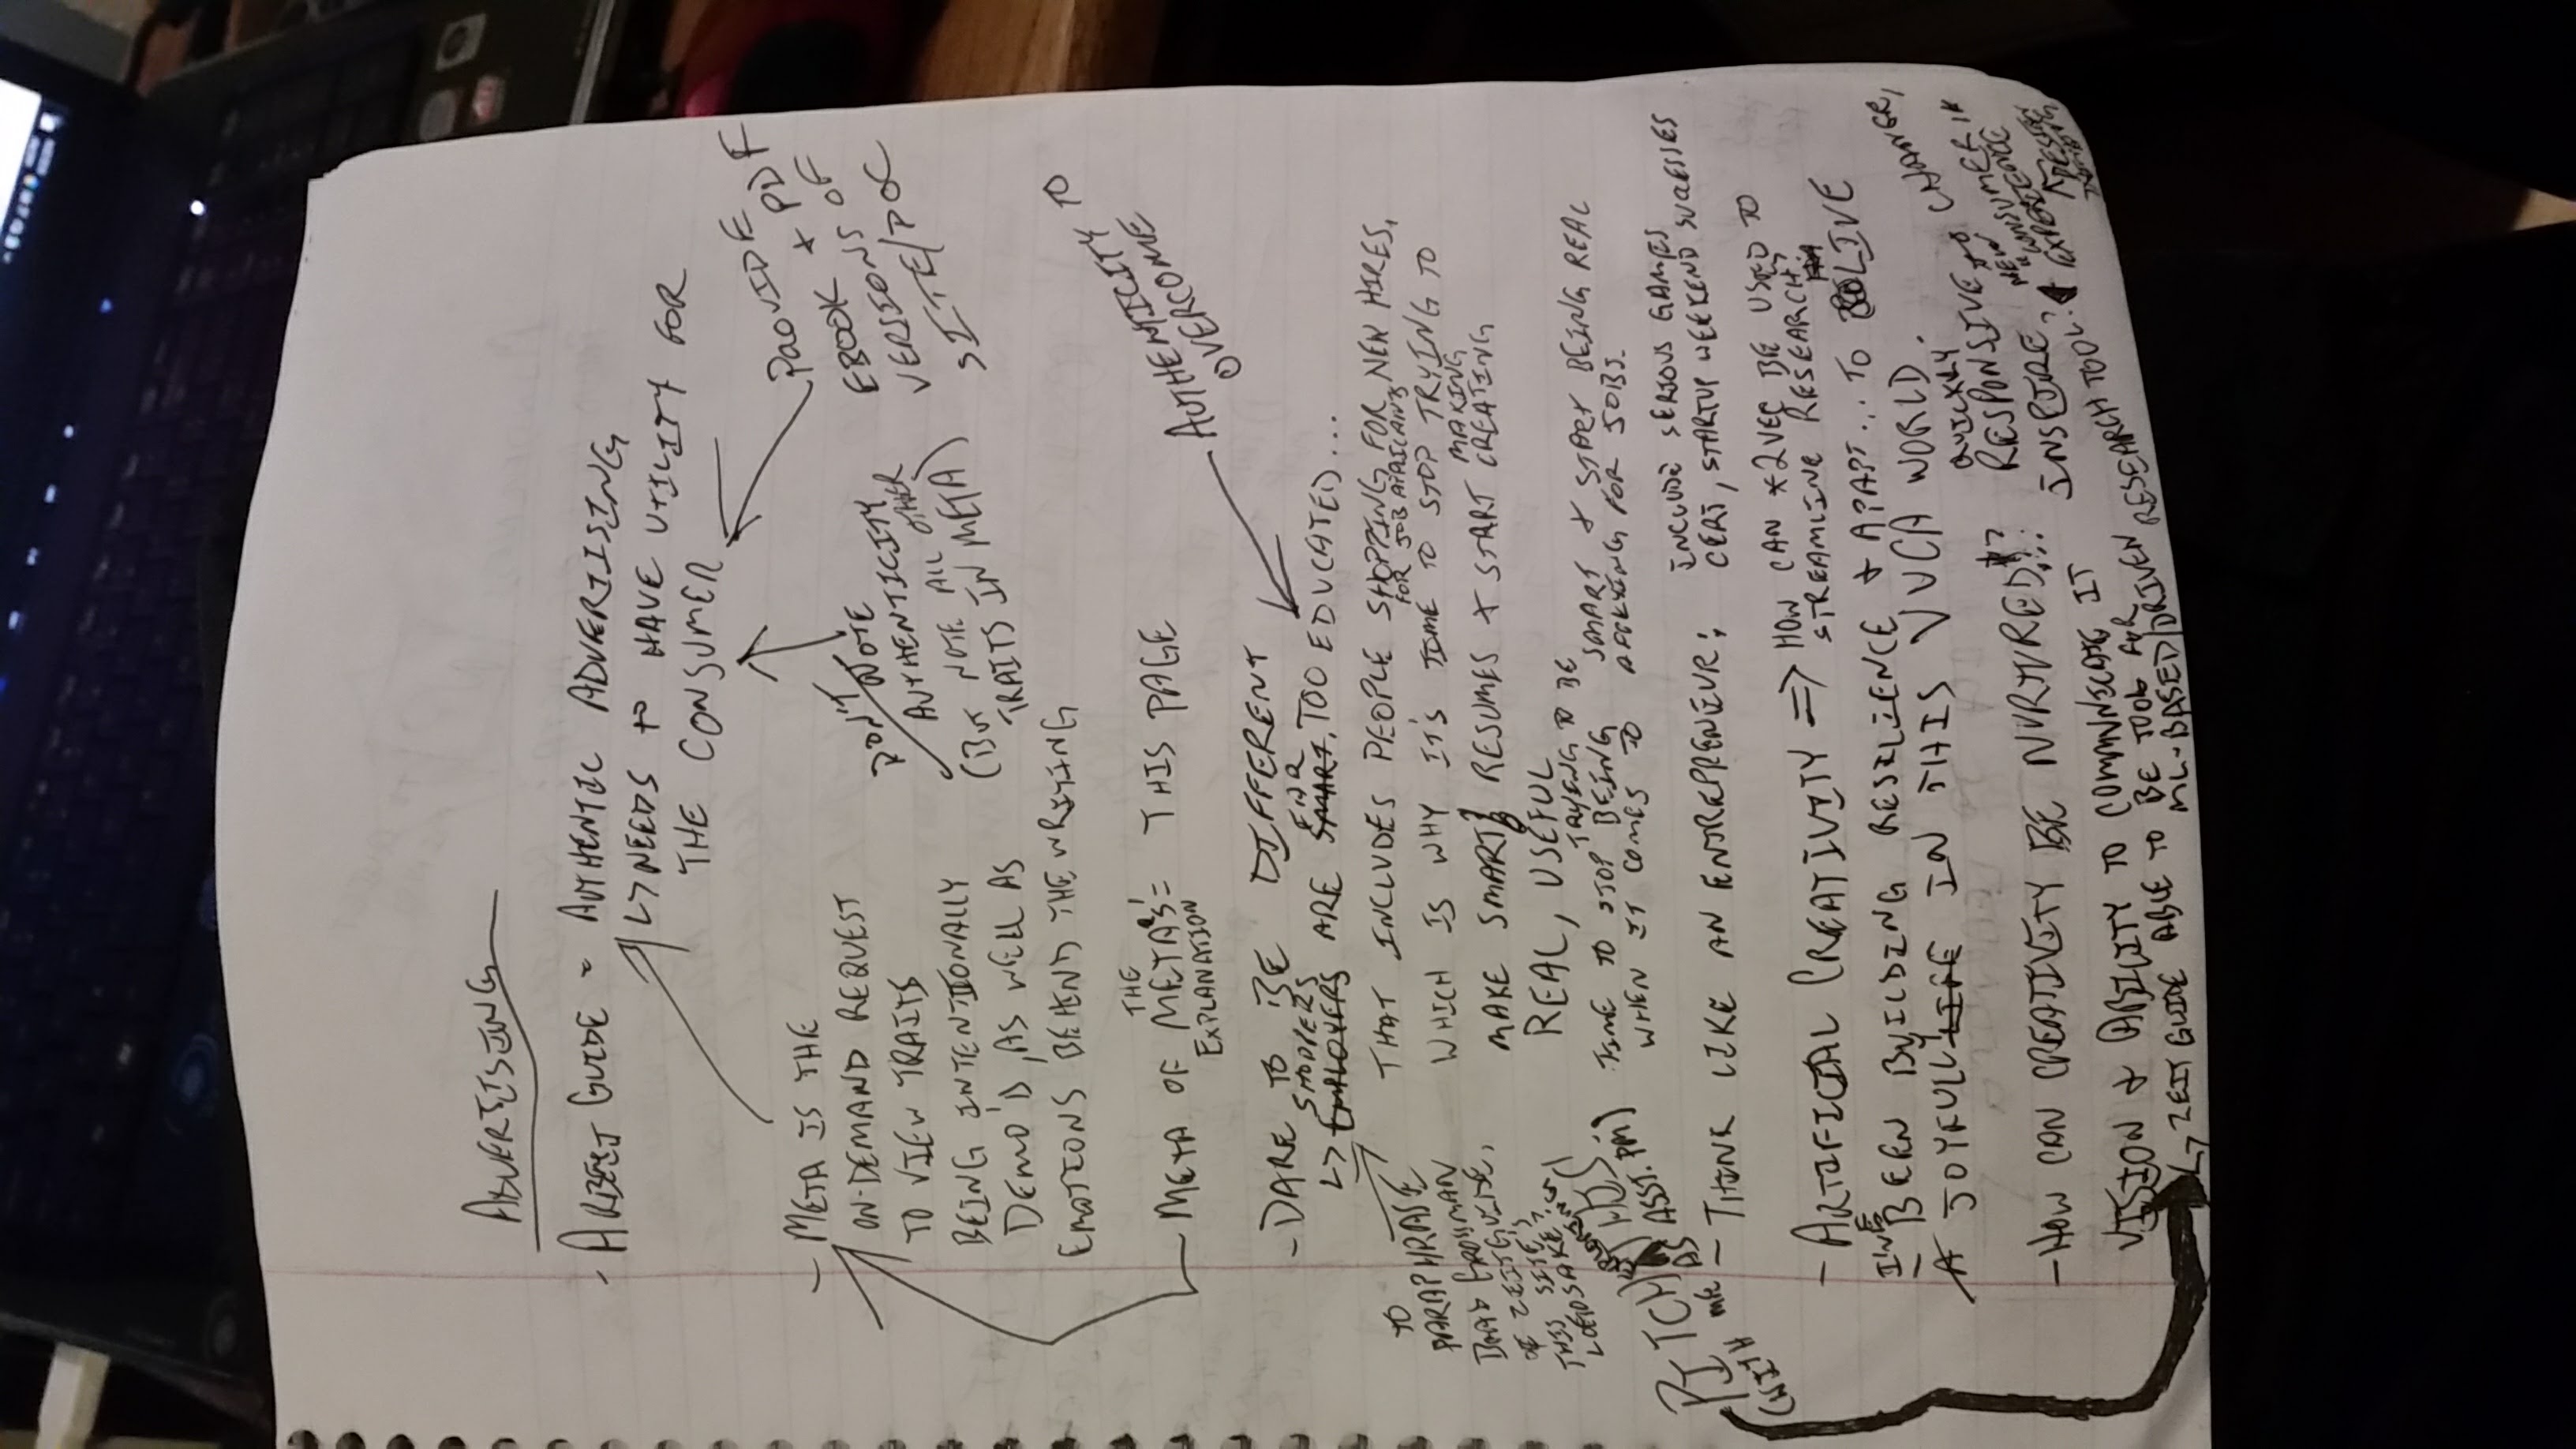 ADVERTISING
- ARBEIT GUIDE = AUTHENTIC ADVERTISING
↳ NEEDS TO HAVE UTILITY FOR
THE CONSUMER
PROVIDE
EBOOK + PDF
VERSIONS OF
SITE/POC
DON'T NOTE
AUTHENTICITY
(BUT NOTE ALL OTHER
TRAITS IN META)
- META IS THE
ON-DEMAND REQUEST
TO VIEW TRAITS
BEING INTENTIONALLY
DEMO'D, AS WELL AS
EMOTIONS BEHIND THE WRITING
THE
- META OF META'S' = THIS PAGE
EXPLANATION
AUTHENTICITY TO
OVERCOME
- DARE TO BE DIFFERENT
SHOPPERS FAR
↳ EMPLOYERS ARE SMART, TOO EDUCATED...
THAT INCLUDES PEOPLE SHOPPING FOR NEW HIRES,
FOR JOB APPLICANTS
WHICH IS WHY IT'S TIME TO STOP TRYING TO
MAKING
MAKE SMART RESUMES + START CREATING
REAL, USEFUL
TRYING TO BE
TIME TO STOP BEING SMART + START BEING REAL
WHEN IT COMES TO APPLYING FOR JOBS.
TO
PARAPHRASE
BRAD GROSSMAN
OF ZEITGUIDE,
THIS SITE'S
LOGOSAKE?
PITCH EXPLORING THIS!
(WITH ME AS ASST. PM)
- THINK LIKE AN ENTREPRENEUR:
INCLUDE SERIOUS GAMES
CERT, STARTUP WEEKEND SUCESSES
- ARTIFICIAL CREATIVITY => HOW CAN *2VEC BE USED TO
STREAMLINE RESEARCH?
I'VE
- BEEN BUILDING RESILIENCE + ADAPT... TO LIVE
A JOYFULLY LIFE IN THIS VUCA WORLD.
- HOW CAN CREATIVITY BE NURTURED!?
QUICKLY
RESPONSIVE TO CHANGE,
VISION + ABILITY TO COMMUNICATE IT INSPIRE
↳ ZEITGUIDE ABLE TO BE TOOL FOR
ML-BASED/DRIVEN RESEARCH TOOL?
NEW
"CONSUMER
EXPERIENCE
DESIGN